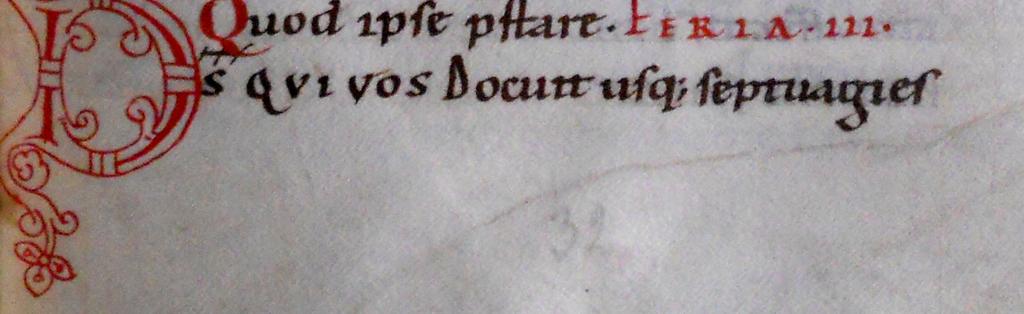 Quod ipse pstare. FERIA. III.
Ds QVI VOS Docuit usq; septuagies
32